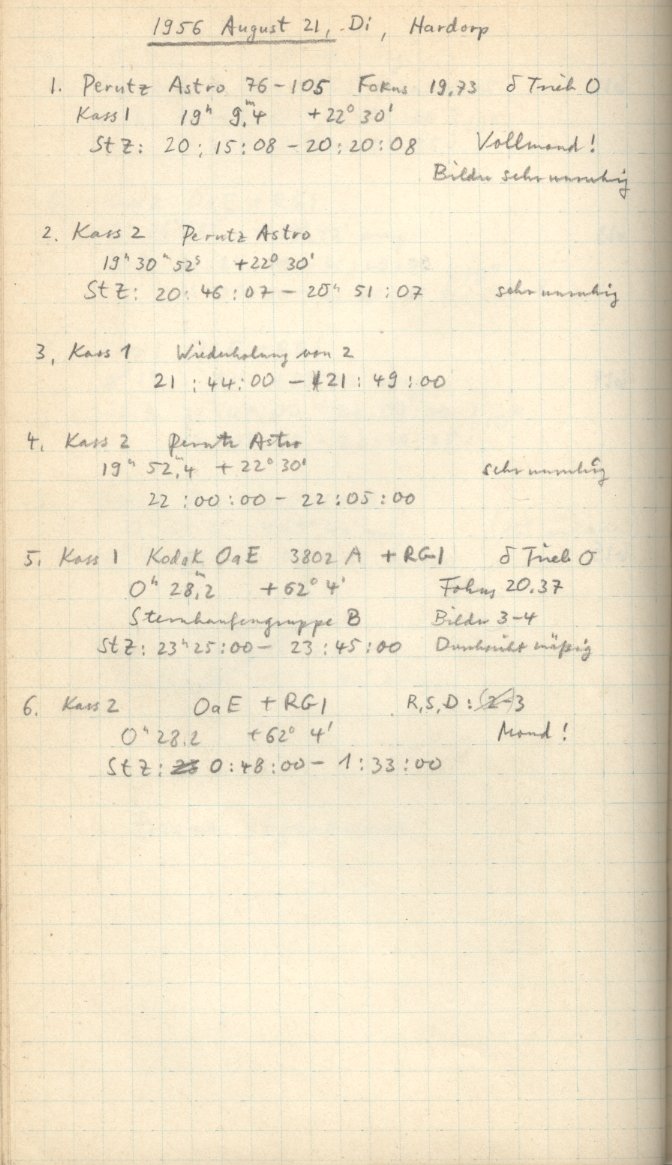 1956 August 21, Di, Hardorp
1. Perutz Astro 76-105 Fokus 19,73 δ Trieb 0
Kass 1 19ʰ 9ᵐ,4 +22° 30'
St Z: 20:15:08 - 20:20:08 Vollmond!
Bilder sehr unruhig
2. Kass 2 Perutz Astro
19ʰ 30ᵐ 52ˢ +22° 30'
St Z: 20:46:07 - 20ʰ 51:07 sehr unruhig
3, Kass 1 Wiederholung von 2
21:44:00 - 21:49:00
4. Kass 2 Perutz Astro
19ʰ 52ᵐ,4 +22° 30' sehr unruhig
22:00:00 - 22:05:00
5. Kass 1 Kodak OaE 3802 A + RG1 δ Trieb 0
0ʰ 28ᵐ,2 +62° 4' Fokus 20.37
Sternhaufengruppe B Bilder 3-4
St Z: 23ʰ 25:00 - 23:45:00 Durchsicht mäßig
6. Kass 2 OaE + RG1 R,S,D: 3
0ʰ 28.2 +62° 4' Mond!
St Z: 0:48:00 - 1:33:00